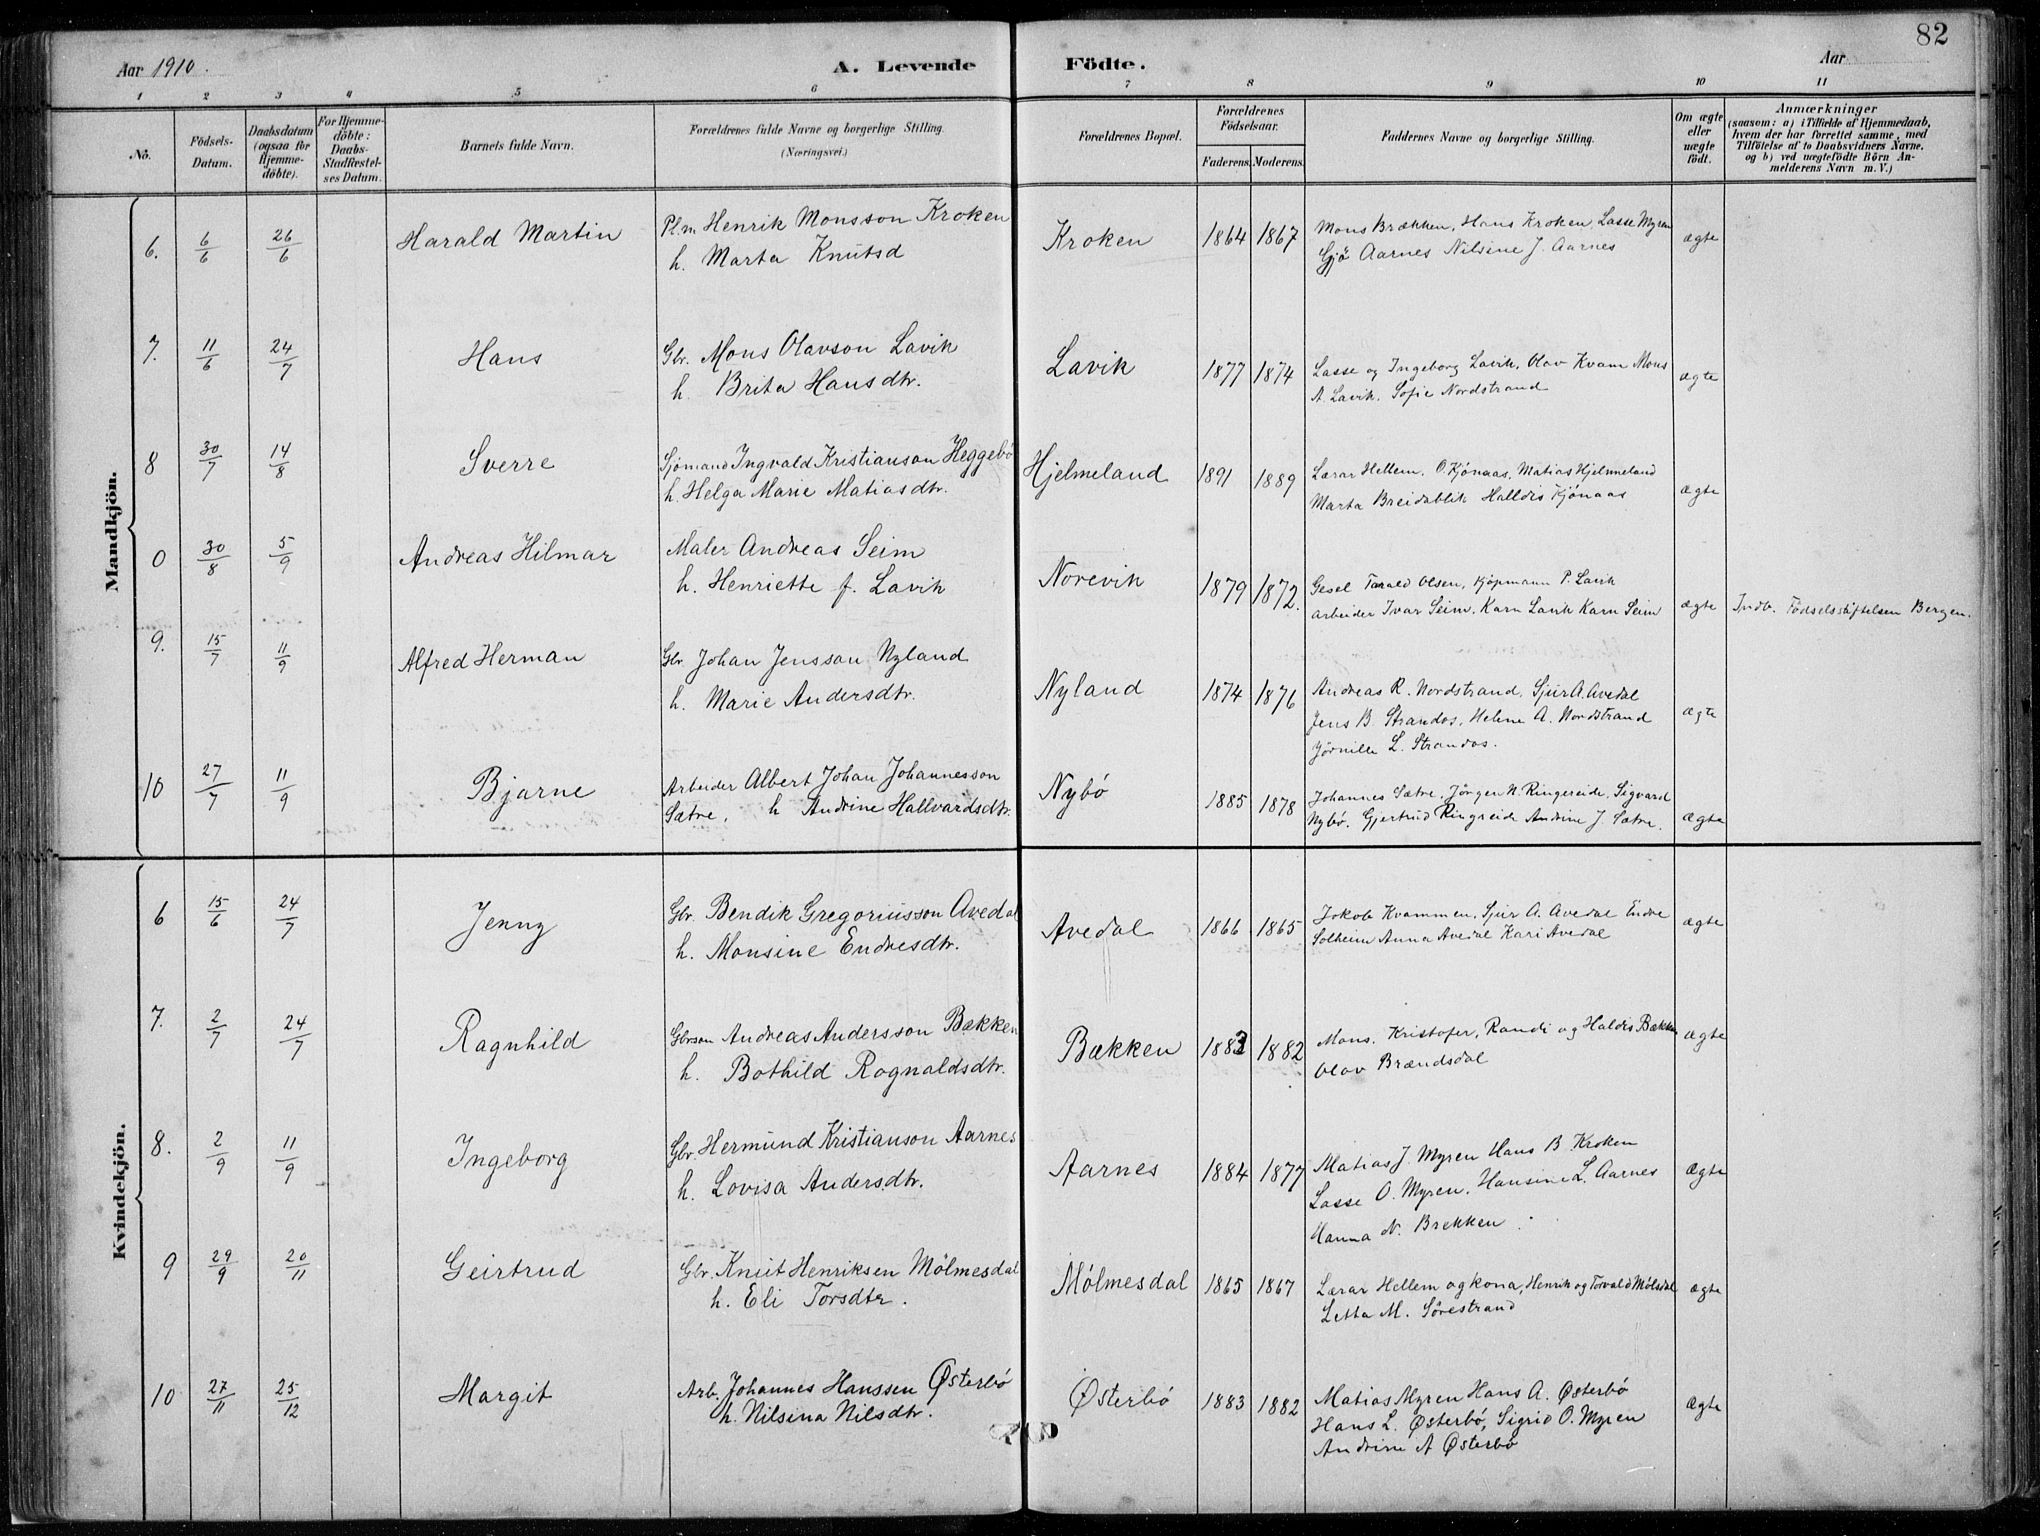 82
Aar 1910.
A. Levende Födte.
Aar
1 2 3 4 5 6 7 8 9 10 11
No.
Födsels-Datum.
Daabsdatum (ogsaa for Hjemme-döbte).
For Hjemme-döbte: Daabs-Stadfæstel-ses Datum.
Barnets fulde Navn.
Forældrenes fulde Navne og borgerlige Stilling.
(Næringsvei.)
Forældrenes Bopæl.
Forældrenes Födselsaar.
Faderens. Moderens.
Faddernes Navne og borgerlige Stilling.
Om ægte eller uægte födt.
Anmærkninger
(saasom: a) i Tilfælde af Hjemmedaab, hvem der har forrettet samme, med Tilföielse af to Daabsvidners Navne, og b) ved uægtefödte Börn An-melderens Navn m. V.)
Mandkjön.
6. 6/6 26/6 Harald Martin Plm Henrik Monsson Kroken
h. Marta Knutsd
Kroken 1864 1867 Mons Brækken, Hans Kroken, Lasse Myren
Gjö Aarnes Nilsine J. Aarnes
ægte
7. 11/6 24/7 Hans Gbr. Mons Olavson Lavik
h. Brita Hansdtr.
Lavik 1877 1874 Lasse og Ingeborg Lavik, Olav Kvam Mons
A. Lavik. Sofie Nordstrand
ægte
8 30/7 14/8 Sverre Sjömand Ingvald Kristianson Heggebö
h. Helga Marie Matiasdtr.
Hjelmeland 1891 1889 Lærar Hellem, O. Kjönaas, Matias Hjelmeland
Marta Breidablik Halldis Kjönaas
ægte
0 30/8 5/9 Andreas Hilmar Maler Andreas Seim
h. Henriette f. Lavik
Norevik 1879 1872. Gesel Tarald Olsen, Kjöpmann P. Lavik
arbeider Ivar Seim, Karn Lavik Karn Seim
ægte Indb. Födselsstiftelsen Bergen.
9. 15/7 11/9 Alfred Herman Gbr. Johan Jensson Nyland
h. Marie Andersdtr.
Nyland 1874 1876 Andreas R. Nordstrand, Sjur A. Avedal
Jens B. Strandos, Helene A. Nordstrand
L. Strandos.
ægte
10 27/7 11/9 Bjarne Arbeider Albert Johan Johannesson
Sætre, h Andrine Hallvardsdtr.
Nybö 1885 1878 Johannes Sætre, Jörgen N. Ringereide, Sigvard
Nybö. Gjertrud Ringreide Andrine J. Sætre.
ægte
Kvindekjön.
6 15/6 24/7 Jenny Gbr. Bendik Gregoriusson Avedal
h. Monsine Endresdtr.
Avedal 1866 1865 Jokob Kvammen, Sjur A. Avedal Endre
Solheim Anna Avedal Kari Avedal
ægte
7. 2/7 24/7 Ragnhild Gbrson Andreas Andersson Bækken
h. Bothild Rognaldsdtr.
Bækken 1883 1882 Mons. Kristofer, Randi og Haldis Bækken
Olav Brændsdal
ægte
8. 2/9 11/9 Ingeborg Gbr Hermund Kristianson Aarnes
h. Lovisa Andersdtr.
Aarnes 1884 1877 Matias J. Myren Hans B. Kroken
Lasse O. Myren, Hansine L. Aarnes
Hanna N. Brekken
ægte
9 29/9 20/11 Geirtrud Gbr. Knut Henriksen Mölmesdal
h. Eli Torsdtr.
Mölmesdal 1865 1867 Lærar Hellem og kona, Henrik og Torvald Mölsdal
Letta M. Sörestrand
ægte
10 27/11 25/12 Margit Arb. Johannes Hanssen Østerbö
h. Nilsina Nilsdtr.
Østerbö 1883 1882 Matias Myren Hans A. Østerbö
Hans L. Østerbö, Sigrid O. Myren
Andrine A Østerbö
ægte